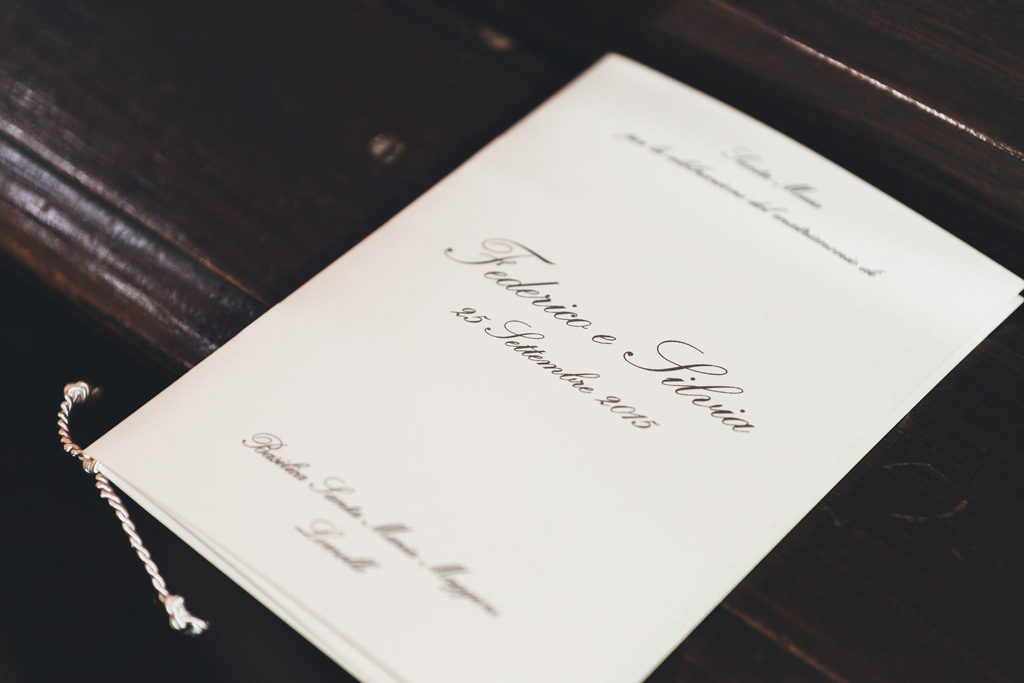 Santa Messa
per la celebrazione del matrimonio di
Federico e Silvia
25 Settembre 2015
Basilica Santa Maria Maggiore